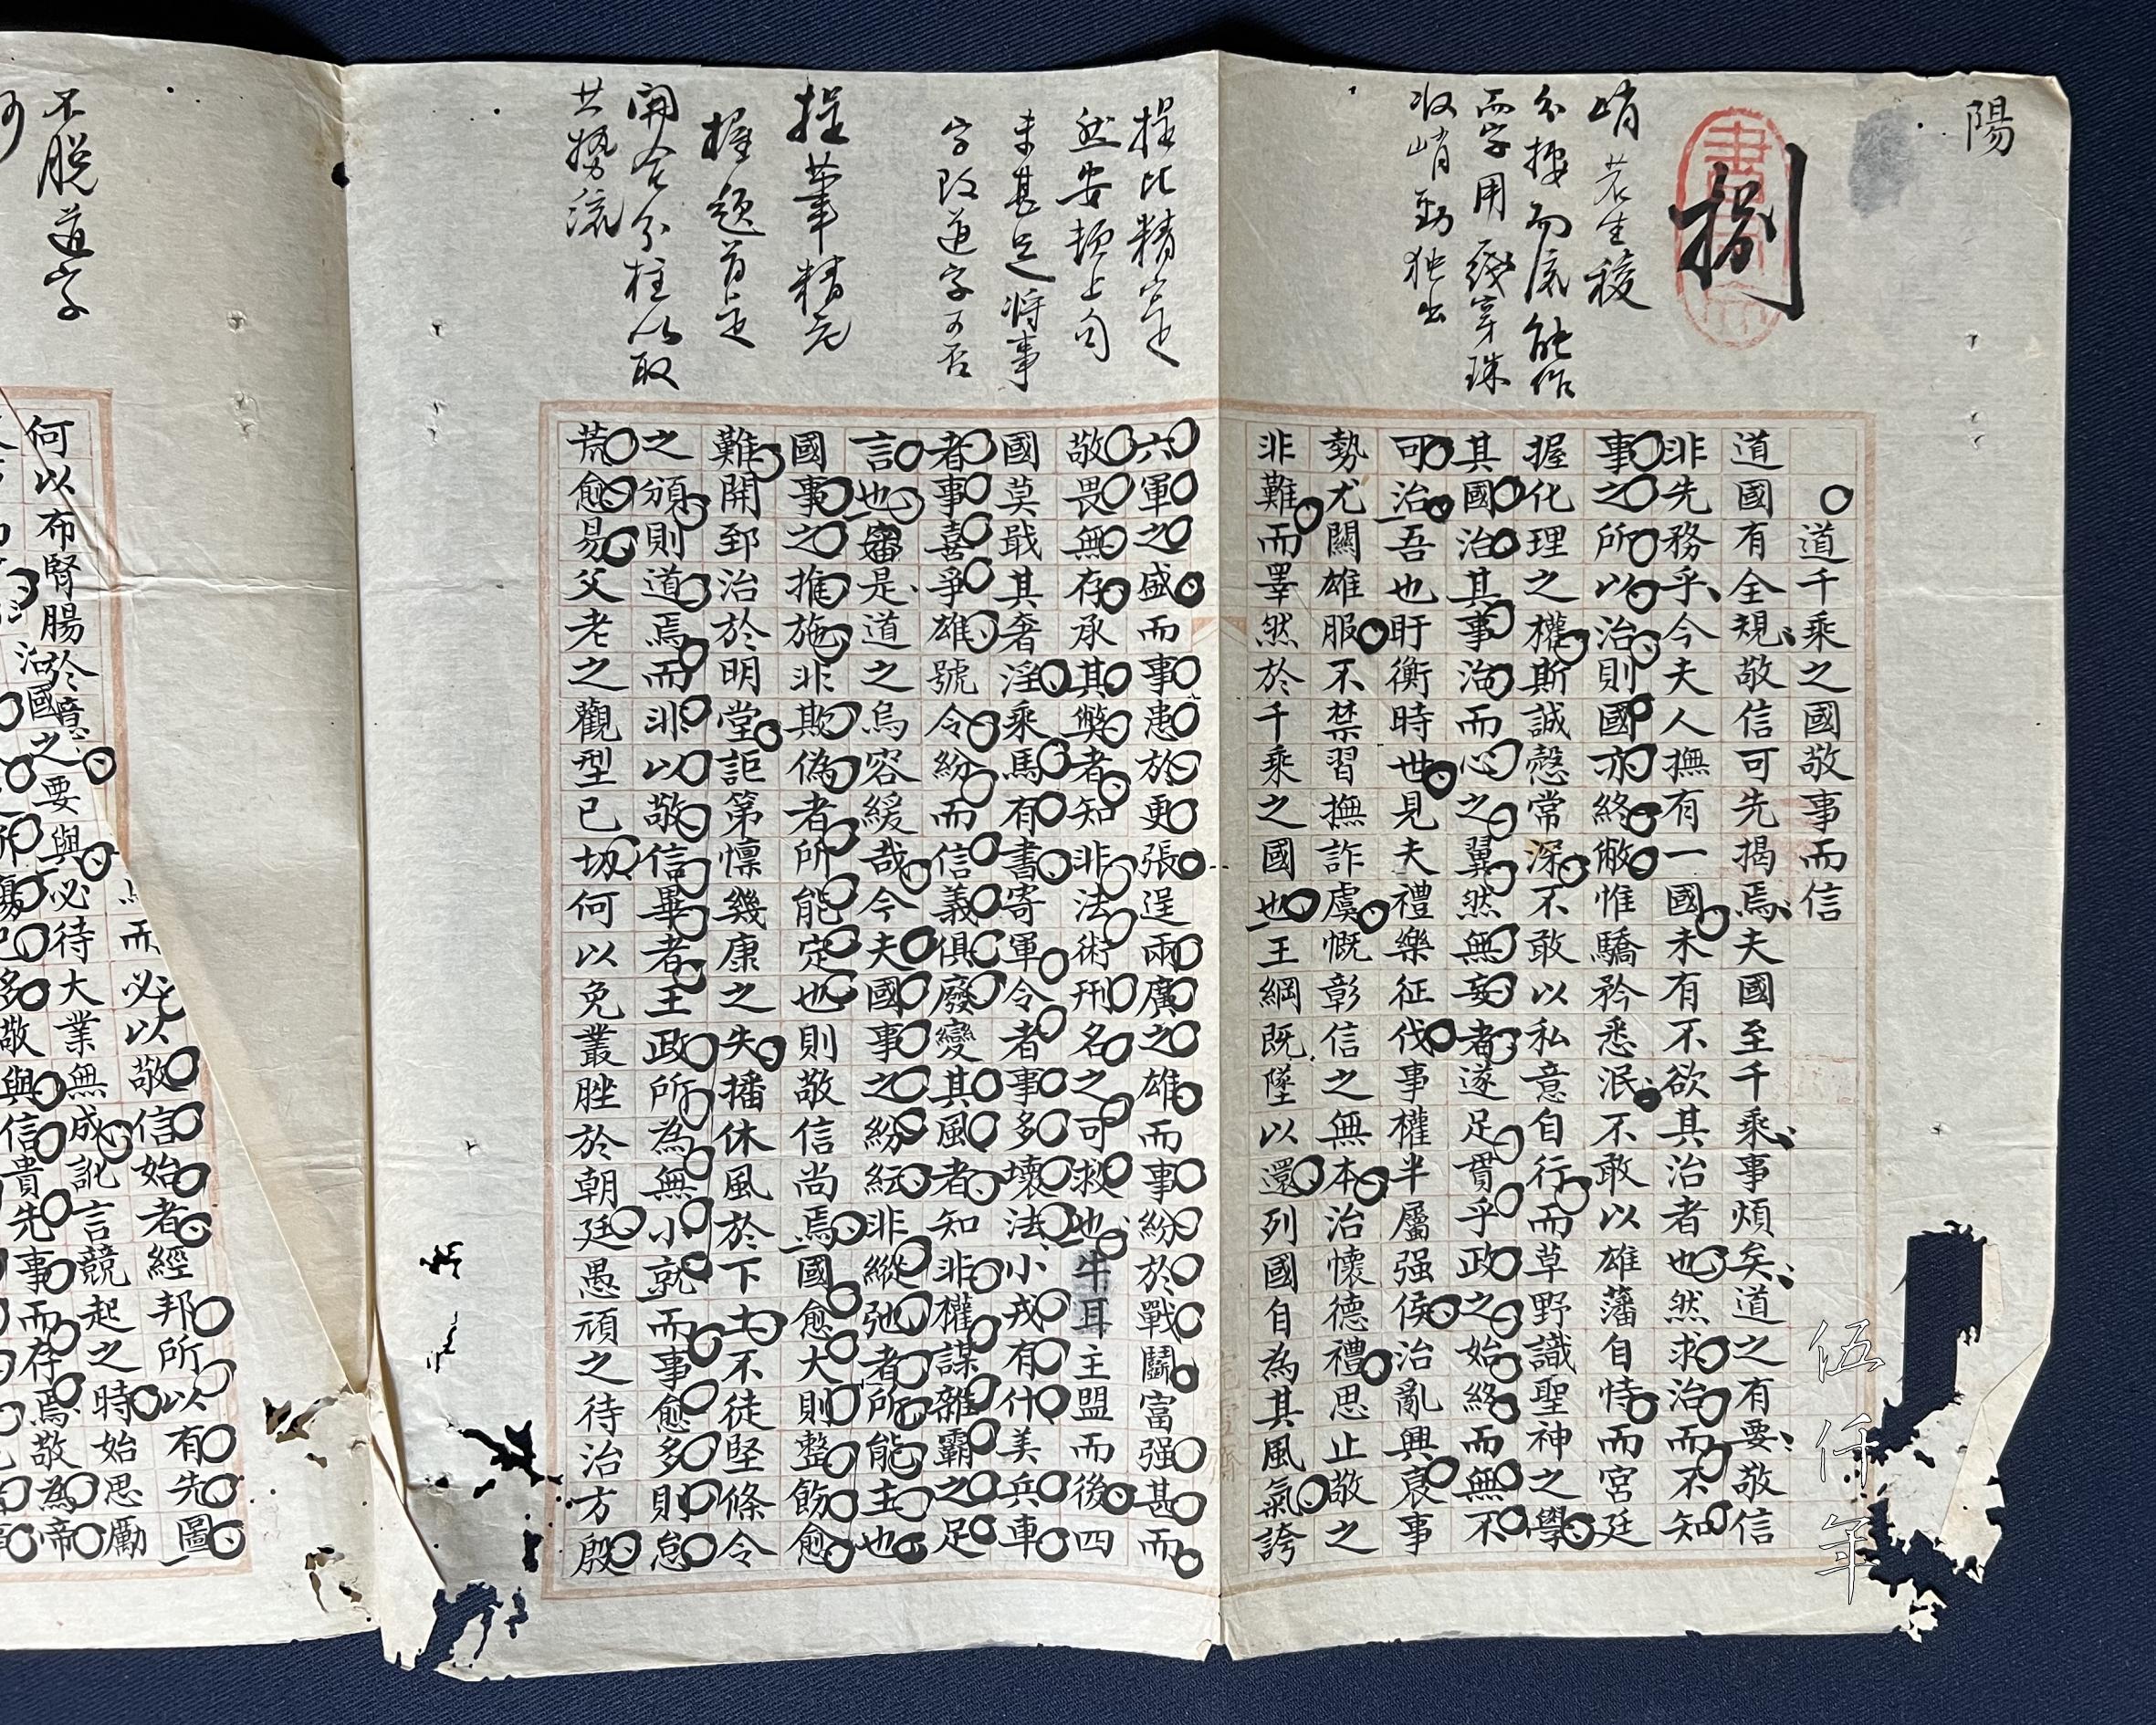 陽
捌
峭若生稜
分接而底能作
兩字用线穿珠
收峭勁独出
提比精实
然安顿上句
未甚足将事
字改道字可否
握题首足
開合分柱以取
其势流
不脱道字
道千乘之國敬事而信
道國有全規敬信可先揭焉夫國至千乘事煩矣道之有要敬信
非先務乎今夫人撫有一國未有不欲其治者也然求治而不知
事之所以治則國亦終敝惟驕矜悉泯不敢以雄藩自恃而宮廷
握化理之權斯誠慤常深不敢以私意自行而草野識聖神之學
其國治其事治而心之翼然無妄者遂足貫乎政之始終而無不
可治吾也盱衡時世見夫禮樂征伐事權半屬强侯治亂興衰事
勢尤關雄服不禁習撫詐虞慨彰信之無本治懷德禮思止敬之
非難而睪然於千乘之國也王綱既墜以還列國自為其風氣誇
六軍之盛而事患於更張逞兩廣之雄而事紛於戰鬬富强甚而
敬畏無存承其弊者知非法術刑名之可救也牛耳主盟而後四
國莫戢其奢淫乘馬有書寄軍令者事多壞法小戎有什美兵車
者事喜爭雄號令紛而信義俱廢變其風者知非權謀雜霸之足
言也審是道之烏容緩哉今夫國事之紛紜非縱弛者所能主也
國事之推施非欺偽者所能定也則敬信尚焉國愈大則整飭愈
難開郅治於明堂詎第懍幾康之失播休風於下土不徒堅條令
之頒則道焉而非以敬信畢者王政所為無小就而事愈多則怠
荒愈易父老之觀型已切何以免叢脞於朝廷愚頑之待治方殷
而必以敬信始者經邦所以有先圖
何以布腎腸於
國之要與必待大業無成訛言競起之時始思勵
敬與信貴先事而存焉敬為帝
伍仟年